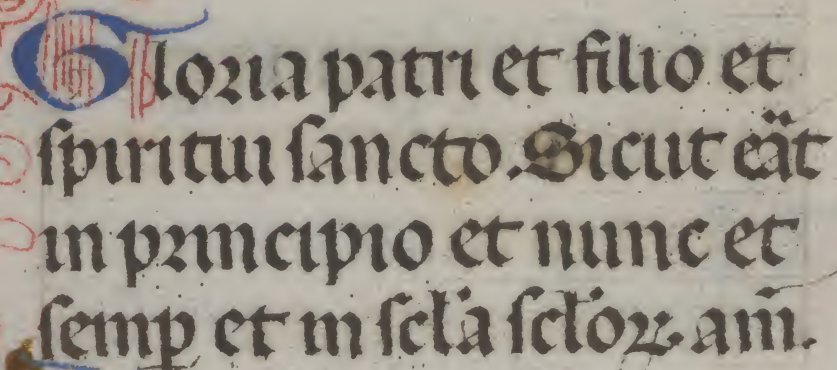 Gloria patri et filio et
spiritui sancto. Sicut eat̄
in principio et nunc et
semꝑ et in scl̄a scl̄oꝝ am̄.